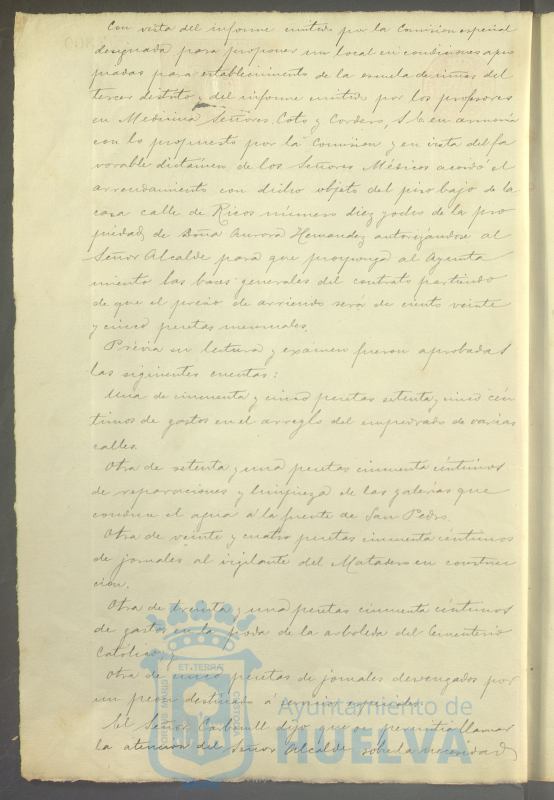 Con vista del informe emitido por la Comision especial
designada para proponer un local en condiciones apro
piadas para establecimiento de la escuela de niñas del
tercer distrito y del informe emitido por los profesores
en Medicina Señores Coto y Cordero, S. E. en armonía
con lo propuesto por la Comision y en vista del fa
vorable dictámen de los Señores Médicos acordó el
arrendamiento con dicho objeto del piso bajo de la
casa calle de Ricos número diez y ocho de la pro
piedad de Doña Aurora Hernandez autorizándose al
Señor Alcalde para que proponga al Ayunta
miento las bases generales del contrato partiendo
de que el precio de arriendo será de ciento veinte
y cinco pesetas mensuales.
Prévia su lectura y exámen fueron aprobadas
las siguientes cuentas:
Una de cincuenta y cinco pesetas setenta y cinco cén
timos de gastos en el arreglo del empedrado de varias
calles.
Otra de setenta y una pesetas cincuenta céntimos
de reparaciones y limpieza de las galerías que
conducen el agua á la fuente de San Pedro.
Otra de veinte y cuatro pesetas cincuenta céntimos
de jornales al vigilante del Matadero en construc
cion.
Otra de treinta y una pesetas cincuenta céntimos
de gastos en la poda de la arboleda del Cementerio
Católico; y
Otra de cinco pesetas de jornales devengados por
un peon destinado á servicios especiales.
El Señor Carbonell dijo que se permitia llamar
la atencion del Señor Alcalde sobre la necesidad
ET TERRA
Ayuntamiento de
HUELVA